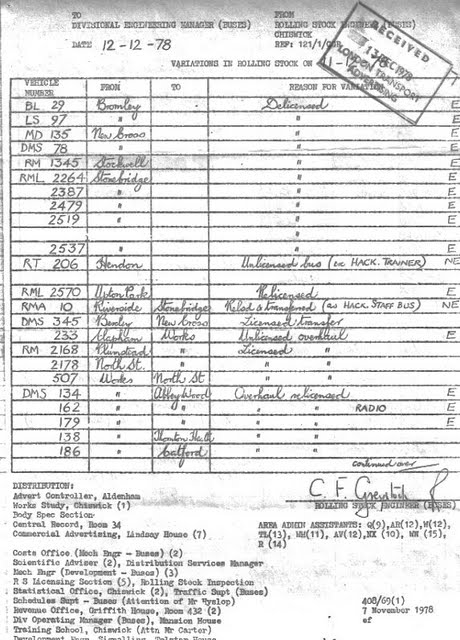 TO FROM
DIVISIONAL ENGINEERING MANAGER (BUSES) ROLLING STOCK ENGINEER (BUSES)
CHISWICK
DATE 12-12-78 REF: 121/1/
RECEIVED
13 DEC 1978
LONDON TRANSPORT
ADVERTISING
VARIATIONS IN ROLLING STOCK ON
VEHICLE NUMBER FROM TO REASON FOR VARIATION
BL 29 Bromley Delicensed E
LS 97 " " E
MD 135 New Cross " E
DMS 78 " " E
RM 1345 Stockwell " E
RML 2264 Stonebridge " E
2387 " " E
2479 " " E
2519 " " E
" "
2537 " " E
RT 206 Hendon Unlicensed bus (ex HACK. TRAINER) NE
RML 2570 Upton Park Relicensed E
RMA 10 Riverside Stonebridge Relcd & transferred (as HACK. STAFF BUS) NE
DMS 345 Bexley New Cross Licensed transfer E
233 Clapham Works Unlicensed overhaul E
RM 2168 Plumstead " Licensed "
2178 North St. " " "
507 Works North St " "
DMS 134 " Abbey Wood Overhaul relicensed E
162 " " " " RADIO E
179 " " " " E
138 " Thornton Hth " "
186 " Catford " "
continued over
DISTRIBUTION:
Advert Controller, Aldenham
Works Study, Chiswick (1) ROLLING STOCK ENGINEER (BUSES)
Body Spec Section
Central Record, Room 34 AREA ADMIN ASSISTANTS: Q(9),AR(12),W(12),
Commercial Advertising, Lindsay House (7) TL(13), WM(11), AV(12), NX (10), WN (15),
R (14)
Costs Office (Mech Engr - Buses) (2)
Scientific Adviser (2), Distribution Services Manager
Mech Engr (Development - Buses) (3)
R S Licensing Section (5), Rolling Stock Inspection
Statistical Office, Chiswick (2), Traffic Supt (Buses)
Schedules Supt - Buses (Attention of Mr Hyslop) 408/69(1)
Revenue Office, Griffith House, Room 432 (2) 7 November 1978
Div Operating Manager (Buses), Mansion House ef
Training School, Chiswick (Attn Mr Carter)